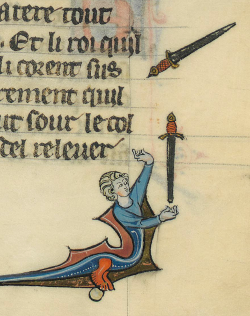 atere tout
. Et li roi quil
li corent sus
rement quil
ut sour le col
del releuer